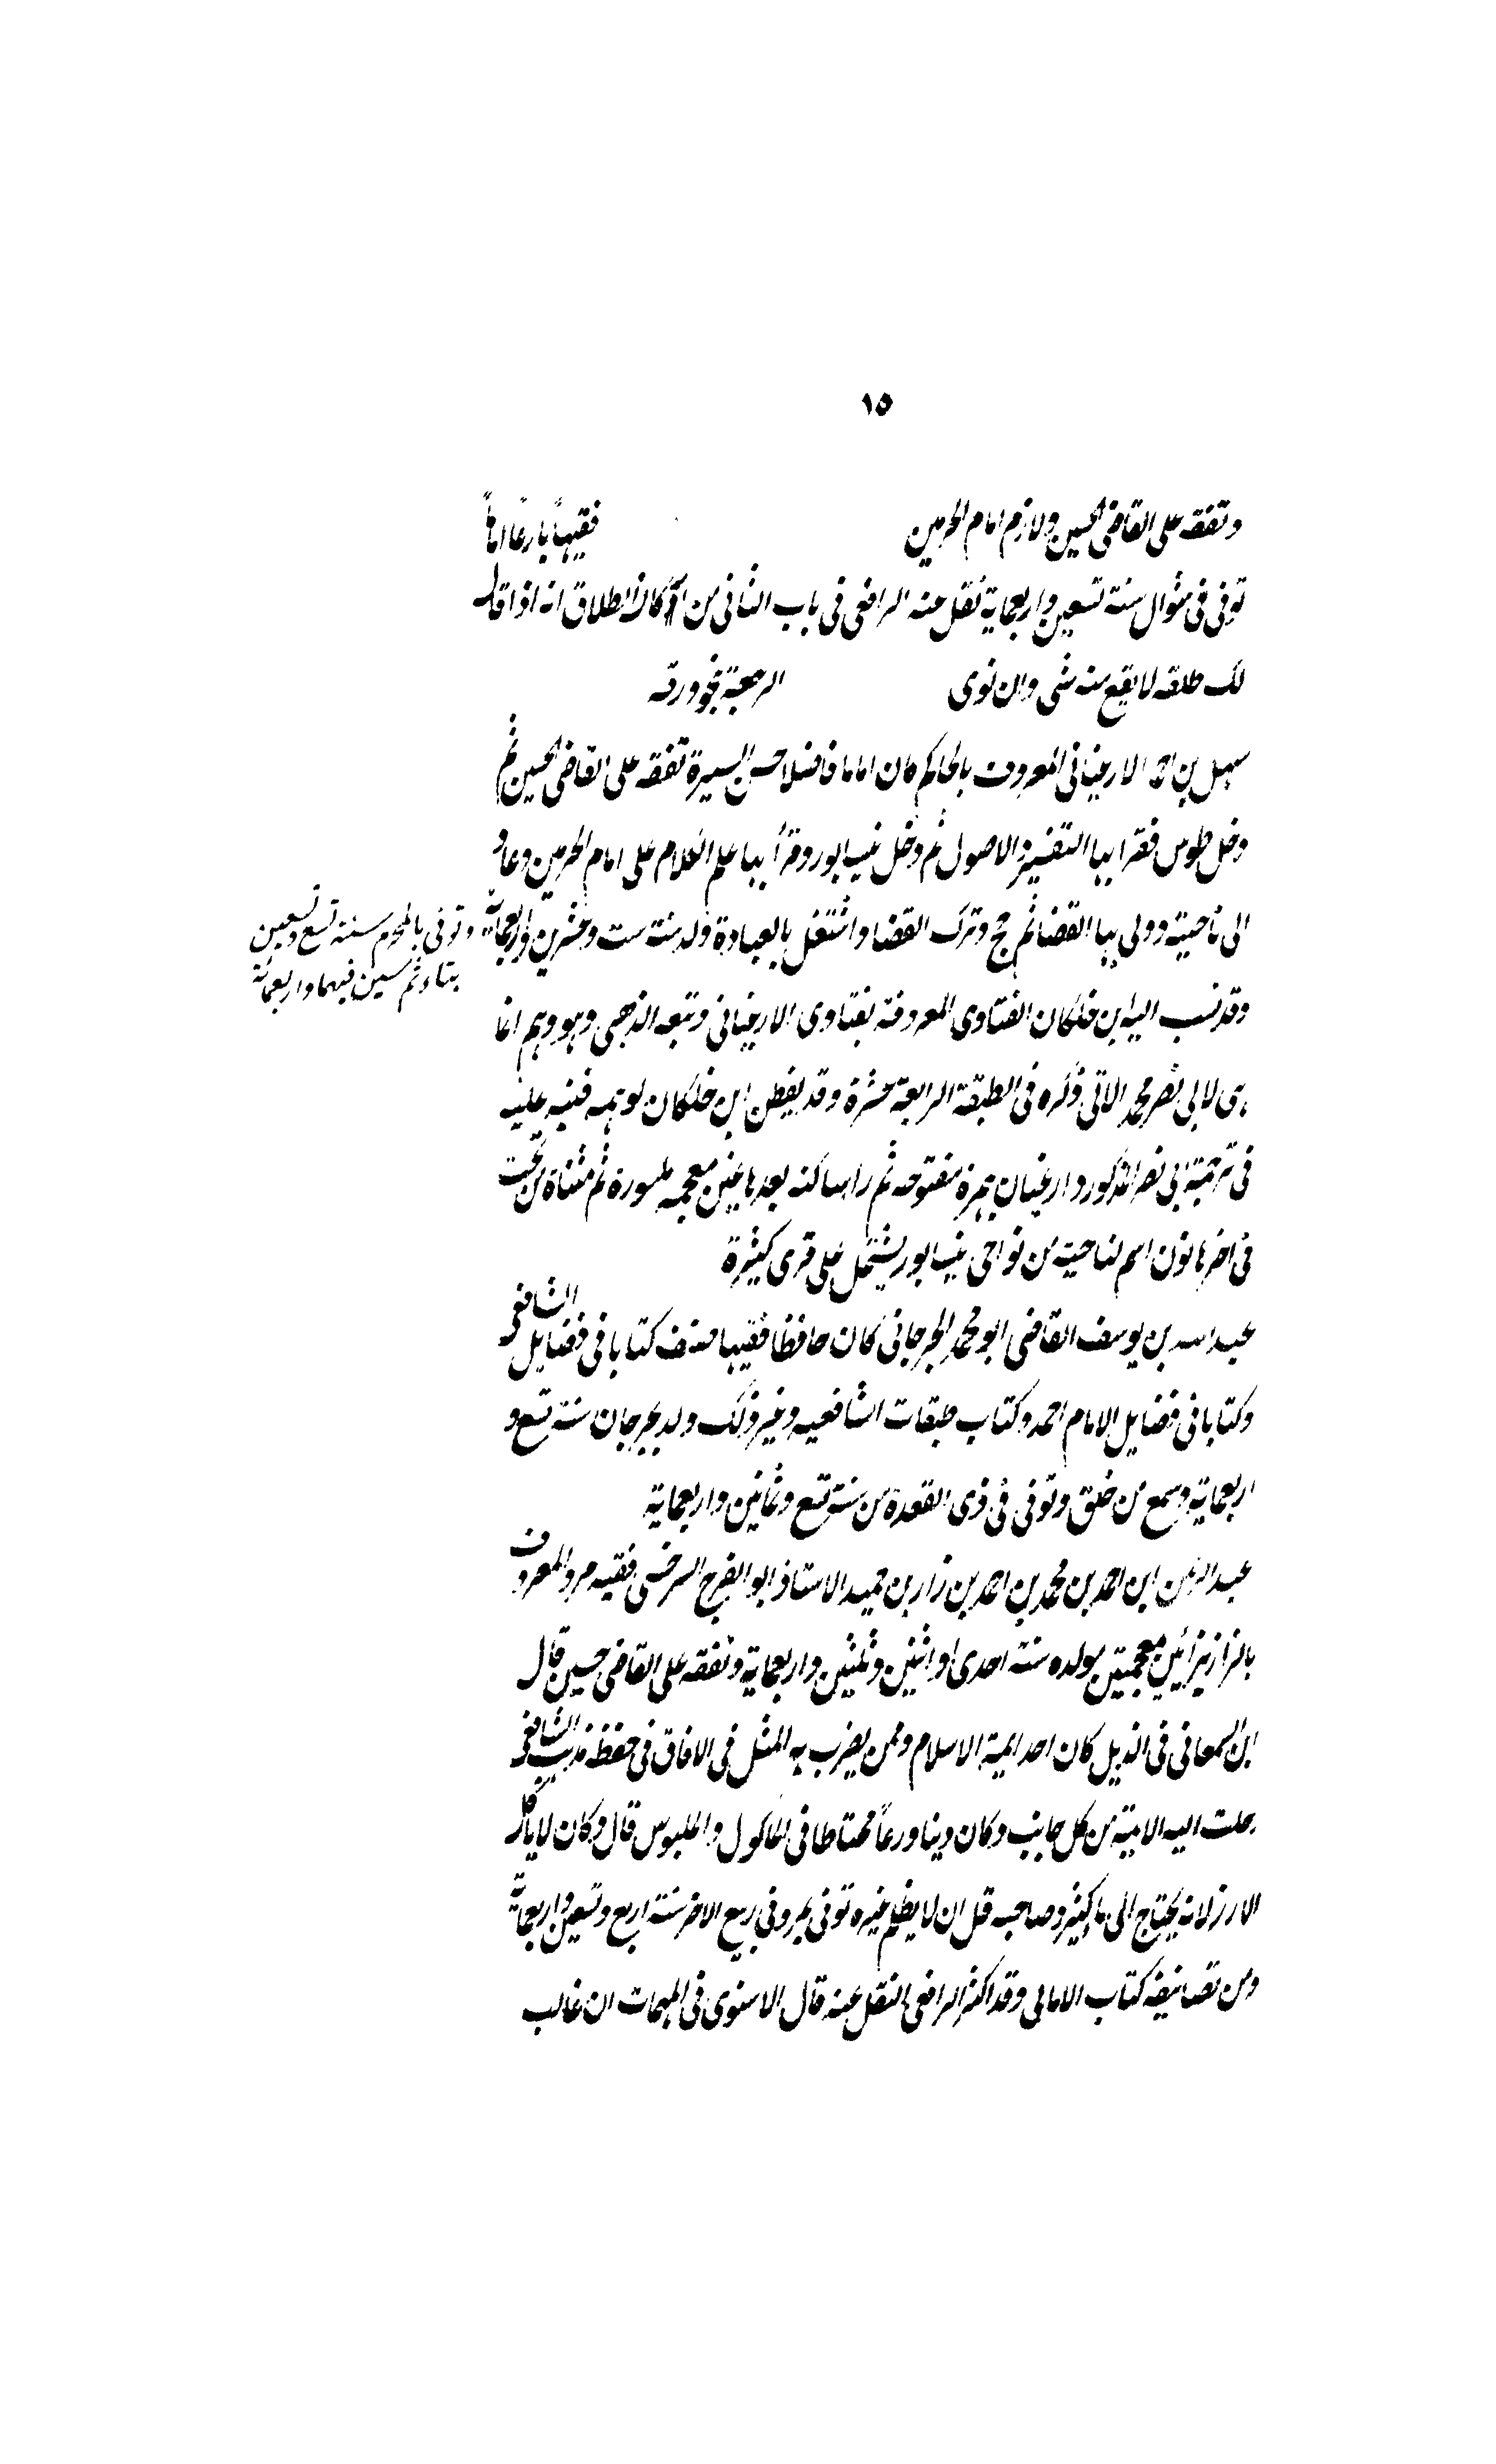 ١٥
وتفقه على القاضى الحسين ولازم امام الحرمين فقيهاً بارعاً اماماً
توفى فى شوال سنة تسعين واربعماية نقل عنه الرافعى فى باب الثانى من اركان الطلاق انه اذا قال
لك طلقه لا يقع منه شى وان نوى الرجعية نحو ورقه
سهل بن احمد الارغيانى المعروف بالحاكم كان اماما فاضلا حسن السيرة تفقه على القاضى الحسين ثم
دخل طوس فقرا بها التفسير والاصول ثم دخل نيسابور وقرأ بها علم الكلام على امام الحرمين وعاد
الى ناحيته وولى بها القضا ثم حج وترك القضا واشتغل بالعبادة ولد سنة ست وعشرين واربعماية
وتوفى بالمحرم سنة تسع وتسعين
بتاء ثم سين فيهما واربعمائة
وقد نسب اليه ابن خلكان الفتاوى المعروفة بفتاوى الارغيانى وتبعه الذهبى وهو وهم انما
هى لابى نصر محمد الاتى ذكره فى الطبقة الرابعة عشرة وقد يفطن ابن خلكان لوهمه فنبه عليه
فى ترجمة ابى نصر المذكور وارغيان بهمزة مفتوحه ثم را ساكنه بعدها غين معجمه مكسورة ثم مثناة من تحت
فى اخرها نون اسم لناحية من نواحى نيسابور يشتمل على قرى كثيرة
عبد الله بن يوسف القاضى ابو محمد الجرجانى كان حافظا فقيها صنف كتابا فى فضايل الشافعى
وكتابا فى فضايل الامام احمد وكتاب طبقات الشافعيه وغير ذلك ولد بجرجان سنة تسع و
اربعماية وسمع من خلق وتوفى فى ذى القعدة من سنة تسع وثمانين واربعماية
عبد الرحمن ابن احمد بن محمد بن احمد بن زار بن حميد الاستاذ ابو الفرج السرخسى فقيه مرو المعروف
بالزاز بزائين معجمتين مولده سنة احدى او اثنين وثلثين واربعماية وتفقه على القاضى حسين قال
ابن السمعانى فى الذيل كان احد ايمة الاسلام وممن يضرب به المثل فى الافاق فى حفظ مذهب الشافعى
رحلت اليه الايمة من كل جانب وكان دينا ورعاً محتاطا فى الماكول والملبوس قال وكان لا ياكل
الارز لانه يحتاج الى ماء كثير وصاحبه قل ان لا يظلم غيره توفى بمرو فى ربيع الاخر سنة اربع وتسعين واربعماية
ومن تصانيفه كتاب الامالى وقد اكثر الرافعى النقل عنه قال الاسنوى فى المهمات ان غالب